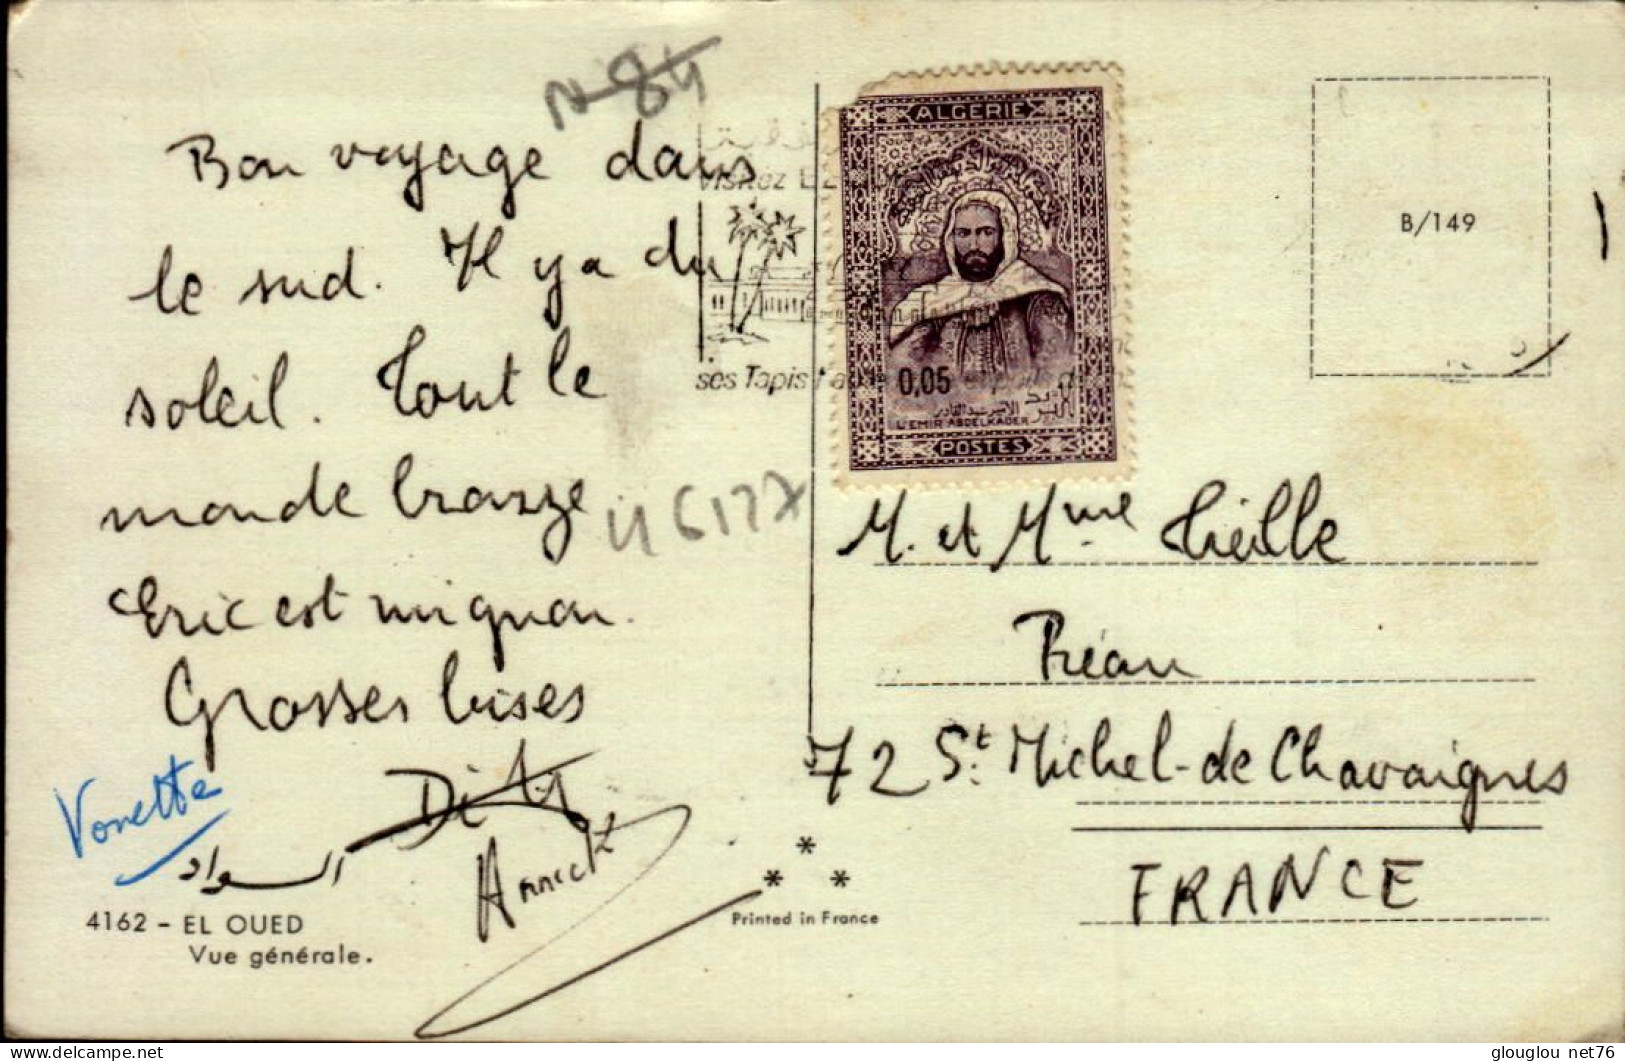 N-84
Bon voyage dans
le sud. Il y a du
soleil. Tout le
monde bronze
Eric est mignon.
Grosses bises
Vonette
Annick
السواد
4162 - EL OUED
Vue générale.
46177
Visitez
ses Tapis
ALGERIE
0,05
الامير عبد القادر
البريد
L'EMIR ABDELKADER
POSTES
B/149
M. et Mme Tieille
Préau
72 St. Michel-de Chavaignes
FRANCE
* * *
Printed in France
glouglou net76